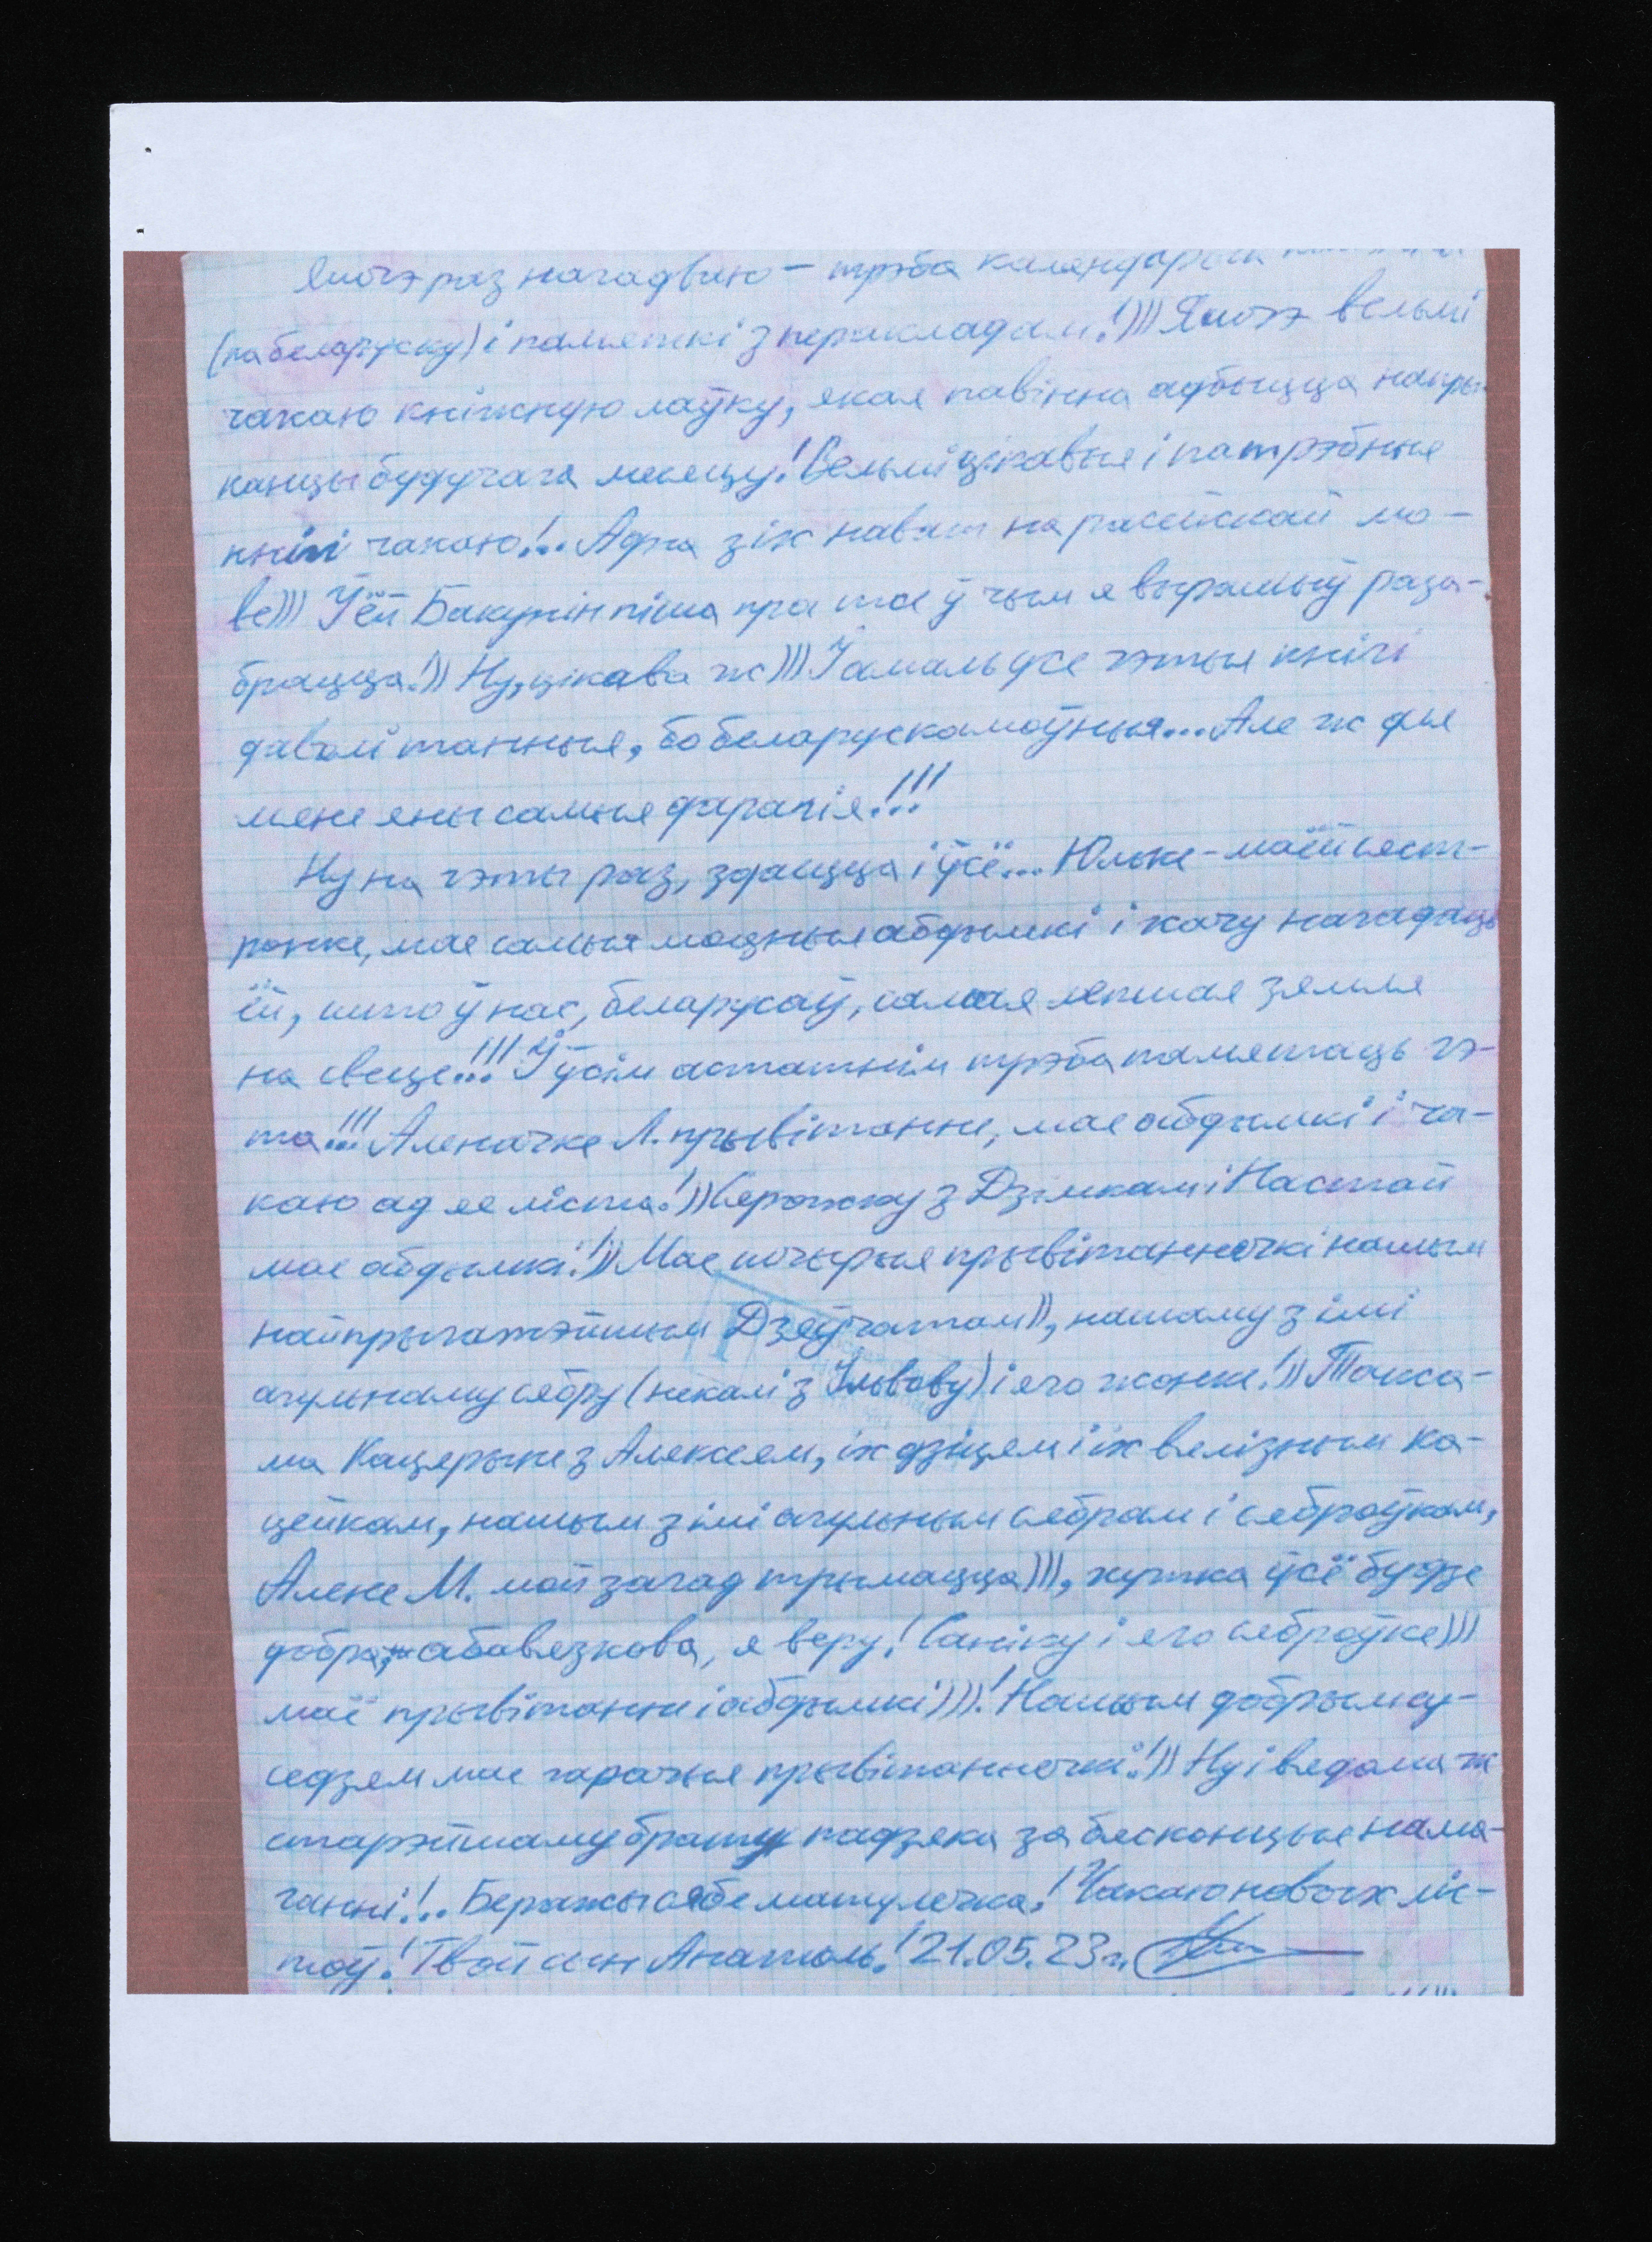 Яшчэ раз нагадваю – трэба календары
(па беларуску) і паметкі з перакладам!))) Яшчэ вельмі
чакаю кніжную лаўку, якая павінна адбыцца напры-
канцы будучага месяцу! Вельмі цікавыя і патрэбныя
кнігі чакаю!.. Адна з іх нават на расейскай мо-
ве))) Ў ёй Бакунін піша пра тое ў чым я вырашыў раза-
брацца!)) Ну, цікава ж))) Ў амаль усе гэтыя кнігі
даволі танныя, бо беларускамоўныя... Але ж для
мяне яны самыя дарагія!!!
Ну на гэты раз, здаецца і ўсё... Юльке – маёй сяст-
ронке, мае самыя моцныя абдымкі і хачу нагадаць
ёй, што ў нас, беларусаў, самая лепшая зямля
на свеце!!! Ў ўсім астатнім трэба памятаць гэ-
та!!! Аленачке Л. прывітанне, мае абдымкі і ча-
каю ад яе ліста!)) Сярожку з Дзімкам і Настай
мае абдымкі!)) Мае шчырыя прывітанначкі нашым
найпрыгажэйшым Дзяўчатам)), нашаму з імі
агульнаму сябру (некалі з Ільвову) і яго жонке!)) Такса-
ма Кацярыне з Алексеем, іх дзіцям і іх вялізным ка-
цейкам, нашым з імі агульным сябрам і сяброўкам,
Алене М. мой загад трымацца))), хутка ўсё будзе
добра, абавязкова, я веру! Саніку і яго сяброўке)))
маё прывітанне і абдымкі)))! Нашым добрым су-
седзям мае гарачыя прывітанначкі!)) Ну і вядома ж
старэйшаму брату падзяка за бясконцыя нама-
ганні!.. Беражы сябе матулечка! Чакаю новых ліс-
тоў! Твой сын Анатоль! 21.05.23 г.